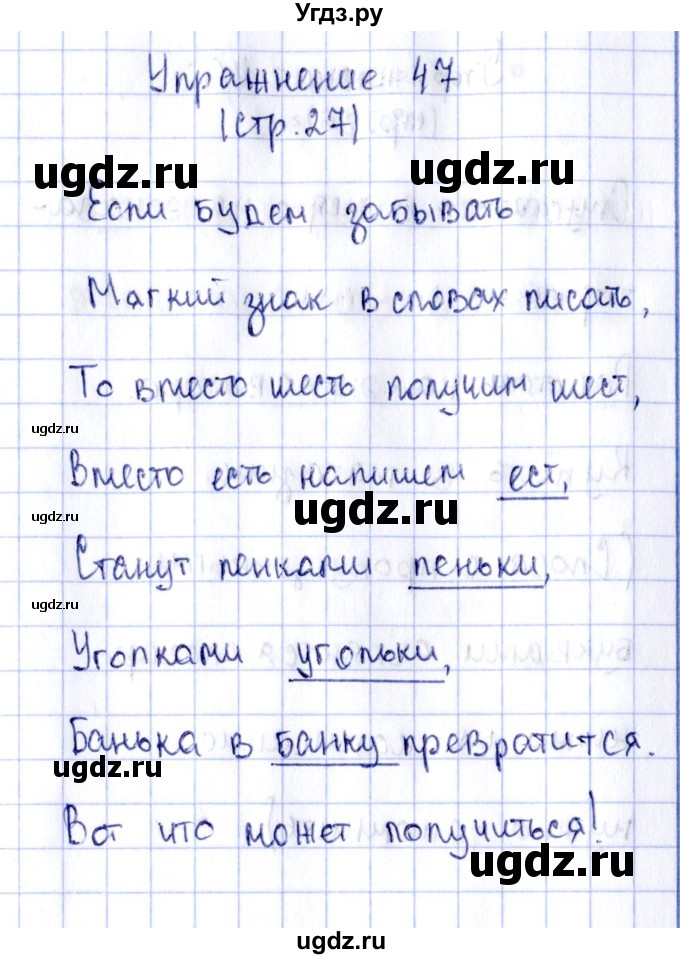 Угдз.ру
Упражнение 47
(стр. 27)
ugdz.ru
ugdz.ru
Если будем забывать
Мягкий знак в словах писать,
То вместо шесть получим шест,
ugdz.ru
Вместо есть напишем ест,
ugdz.ru
ugdz.ru
Станут пенками пеньки,
ugdz.ru
Уголками угольки,
Банька в банку превратится.
ugdz.ru
Вот что может получиться!
ugdz.ru
ugdz.ru